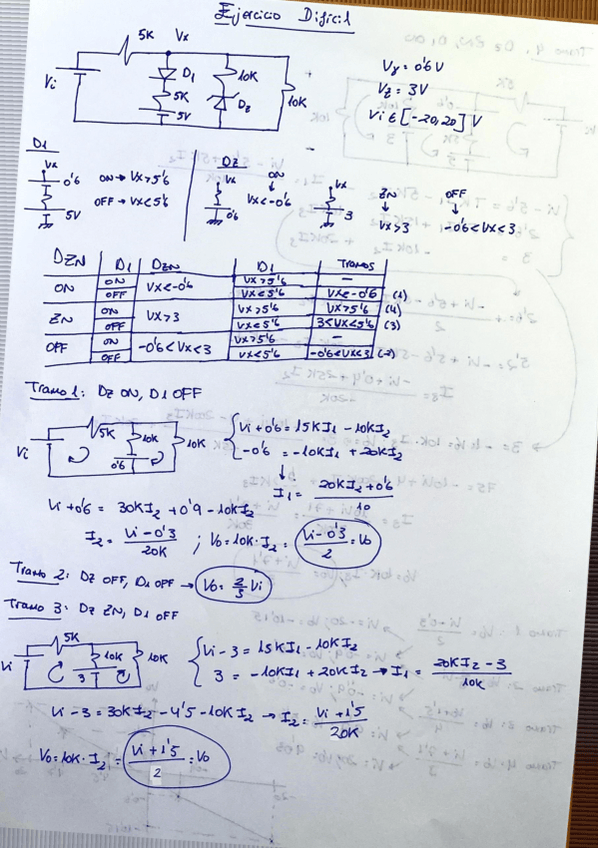 Ejercicio Difícil
5K Vx
Vγ = 0'6 V
Vz = 3V
Vi ∈ [-20,20] V
Vi D1 10K 10K
5K Dz
5V
D1 Dz ON ZN OFF
Vx 0'6 5V ON → Vx > 5'6 Vx 0'6 Vx < -0'6 Vx 3 Vx > 3 -0'6 < Vx < 3
OFF → Vx < 5'6
DZN D1 DZN D1 TRAMOS
ON ON Vx < -0'6 Vx > 5'6 —
OFF Vx < 5'6 Vx < -0'6 (1)
ZN ON Vx > 3 Vx > 5'6 Vx > 5'6 (4)
OFF Vx < 5'6 3 < Vx < 5'6 (3)
OFF ON -0'6 < Vx < 3 Vx > 5'6 —
OFF Vx < 5'6 -0'6 < Vx < 3 (2)
Tramo 1: Dz ON, D1 OFF
Vi 5K 10K 10K 0'6
Vi + 0'6 = 15K I1 - 10K I2
-0'6 = -10K I1 + 20K I2
I1 = 20K I2 + 0'6 / 10
Vi + 0'6 = 30K I2 + 0'9 - 10K I2
I2 = Vi - 0'3 / 20K ; Vo = 10K · I2 = Vi - 0'3 / 2 = Vo
Tramo 2: Dz OFF, D1 OFF → Vo = 2/3 Vi
Tramo 3: Dz ZN, D1 OFF
Vi 5K 10K 10K 3
Vi - 3 = 15K I1 - 10K I2
3 = -10K I1 + 20K I2 → I1 = 20K I2 - 3 / 10K
Vi - 3 = 30K I2 - 4'5 - 10K I2 → I2 = Vi + 1'5 / 20K
Vo = 10K · I2 = Vi + 1'5 / 2 = Vo